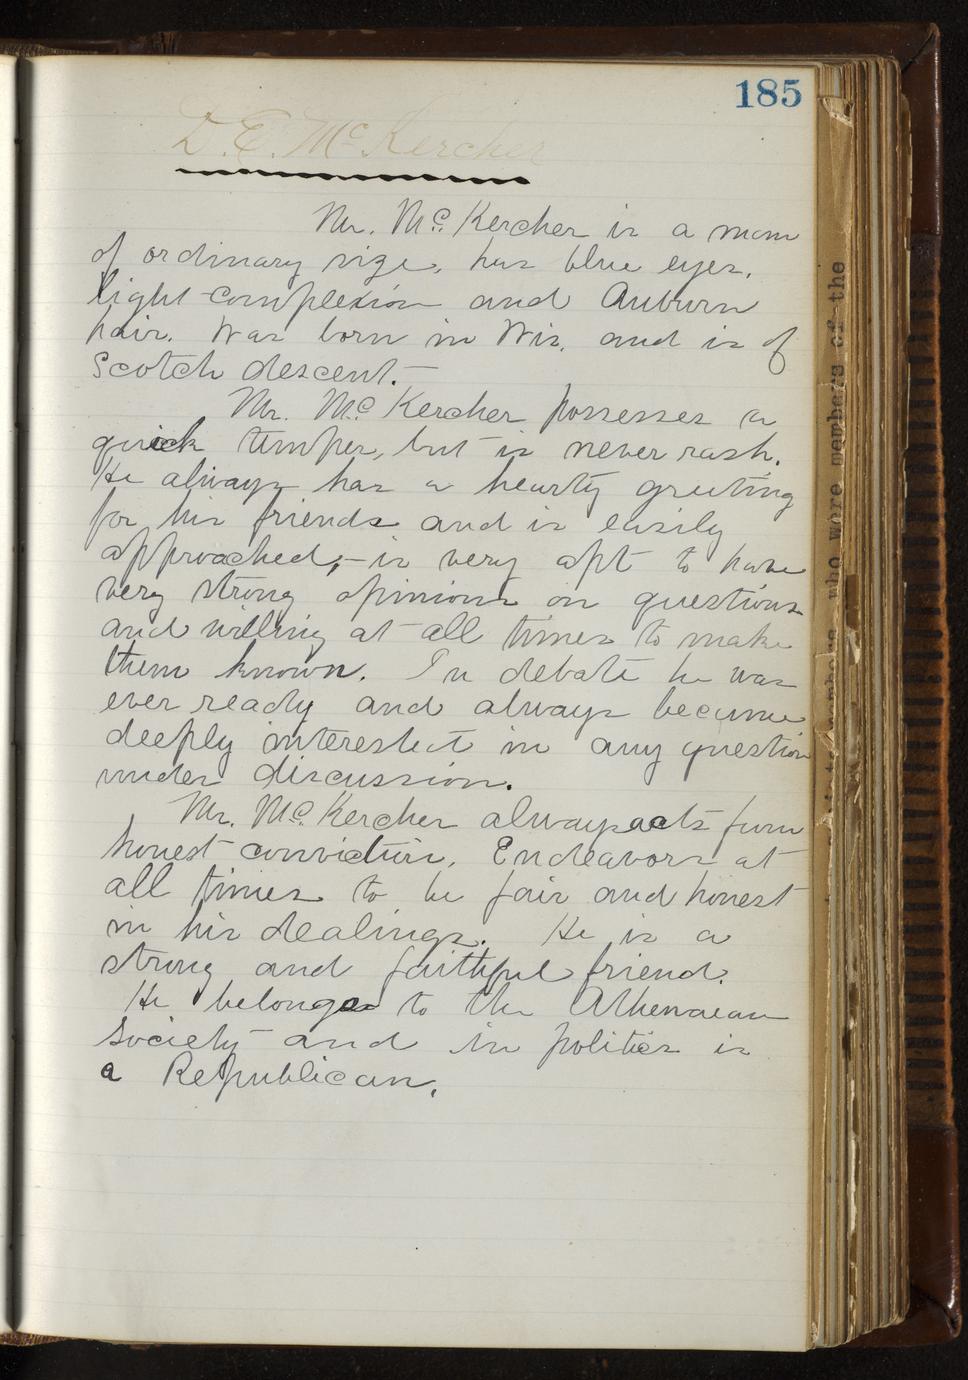 185
D. E. McKercher
Mr. McKercher is a man
of ordinary size, has blue eyes,
light complexion and Auburn
hair. Was born in Wis. and is of
Scotch descent.—
Mr. McKercher possesses a
quick temper, but is never rash.
He always has a hearty greeting
for his friends and is easily
approached,—is very apt to have
very strong opinions on questions
and willing at all times to make
them known. In debate he was
ever ready and always became
deeply interested in any question
under discussion.
Mr. McKercher always acts from
honest conviction, Endeavors at
all times to be fair and honest
in his dealings. He is a
strong and faithful friend.
He belongs to the Athenaean
Society and in politics is
a Republican.
who were members of the